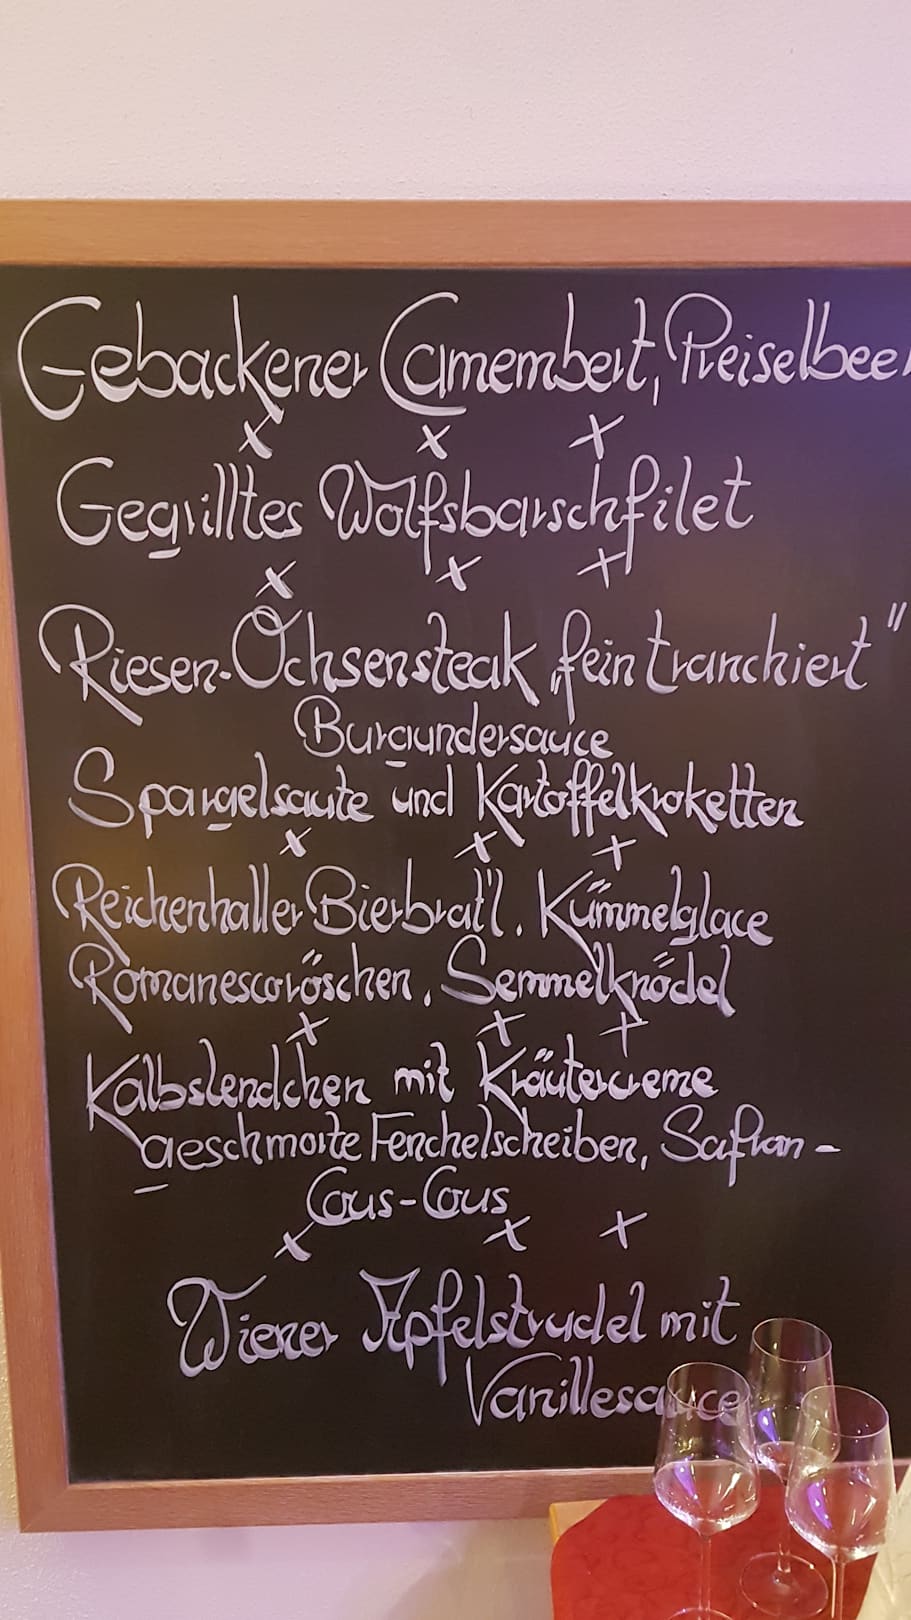 Gebackener Camembert, Preiselbeer
x x x
Gegrilltes Wolfsbarschfilet
x x x
Riesen-Ochsensteak „fein tranchiert"
Burgundersauce
Spargelsaute und Kartoffelkroketten
x x x
Reichenhaller Bierbrat'l. Kümmelglace
Romanescoröschen, Semmelknödel
x x x
Kalbslendchen mit Kräutercreme
geschmorte Fenchelscheiben, Safran-
Cous-Cous
x x x
Wiener Apfelstrudel mit
Vanillesauce